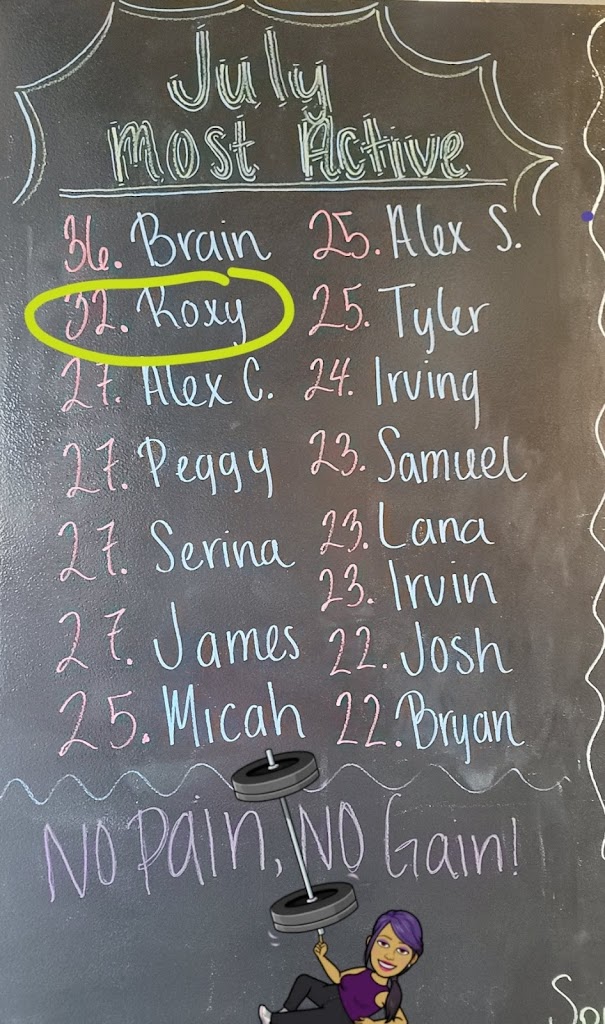 July
Most Active
36. Brain
32. Roxy
27. Alex C.
27. Peggy
27. Serina
27. James
25. Micah
25. Alex S.
25. Tyler
24. Irving
23. Samuel
23. Lana
23. Irvin
22. Josh
22. Bryan
No Pain, No Gain!